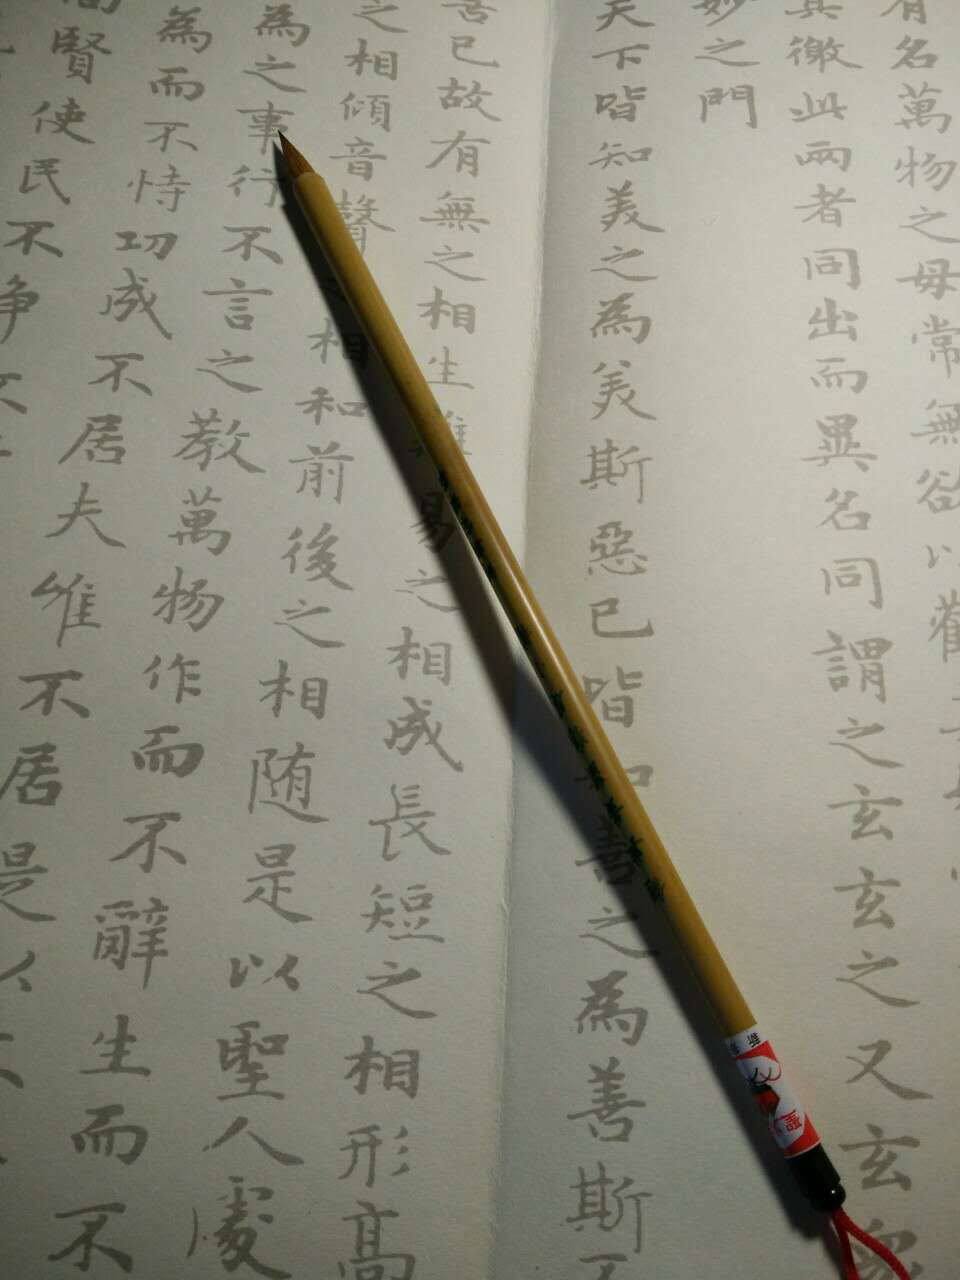 有名萬物之母常無欲以觀
其徼此兩者同出而異名同謂之玄玄之又玄眾
妙之門
天下皆知美之為美斯惡已皆知善之為善斯不
善已故有無之相生難易之相成長短之相形高
之相傾音聲之相和前後之相随是以聖人處
為之事行不言之教萬物作而不辭生而不
為而不恃功成不居夫唯不居是以不
尚賢使民不争不